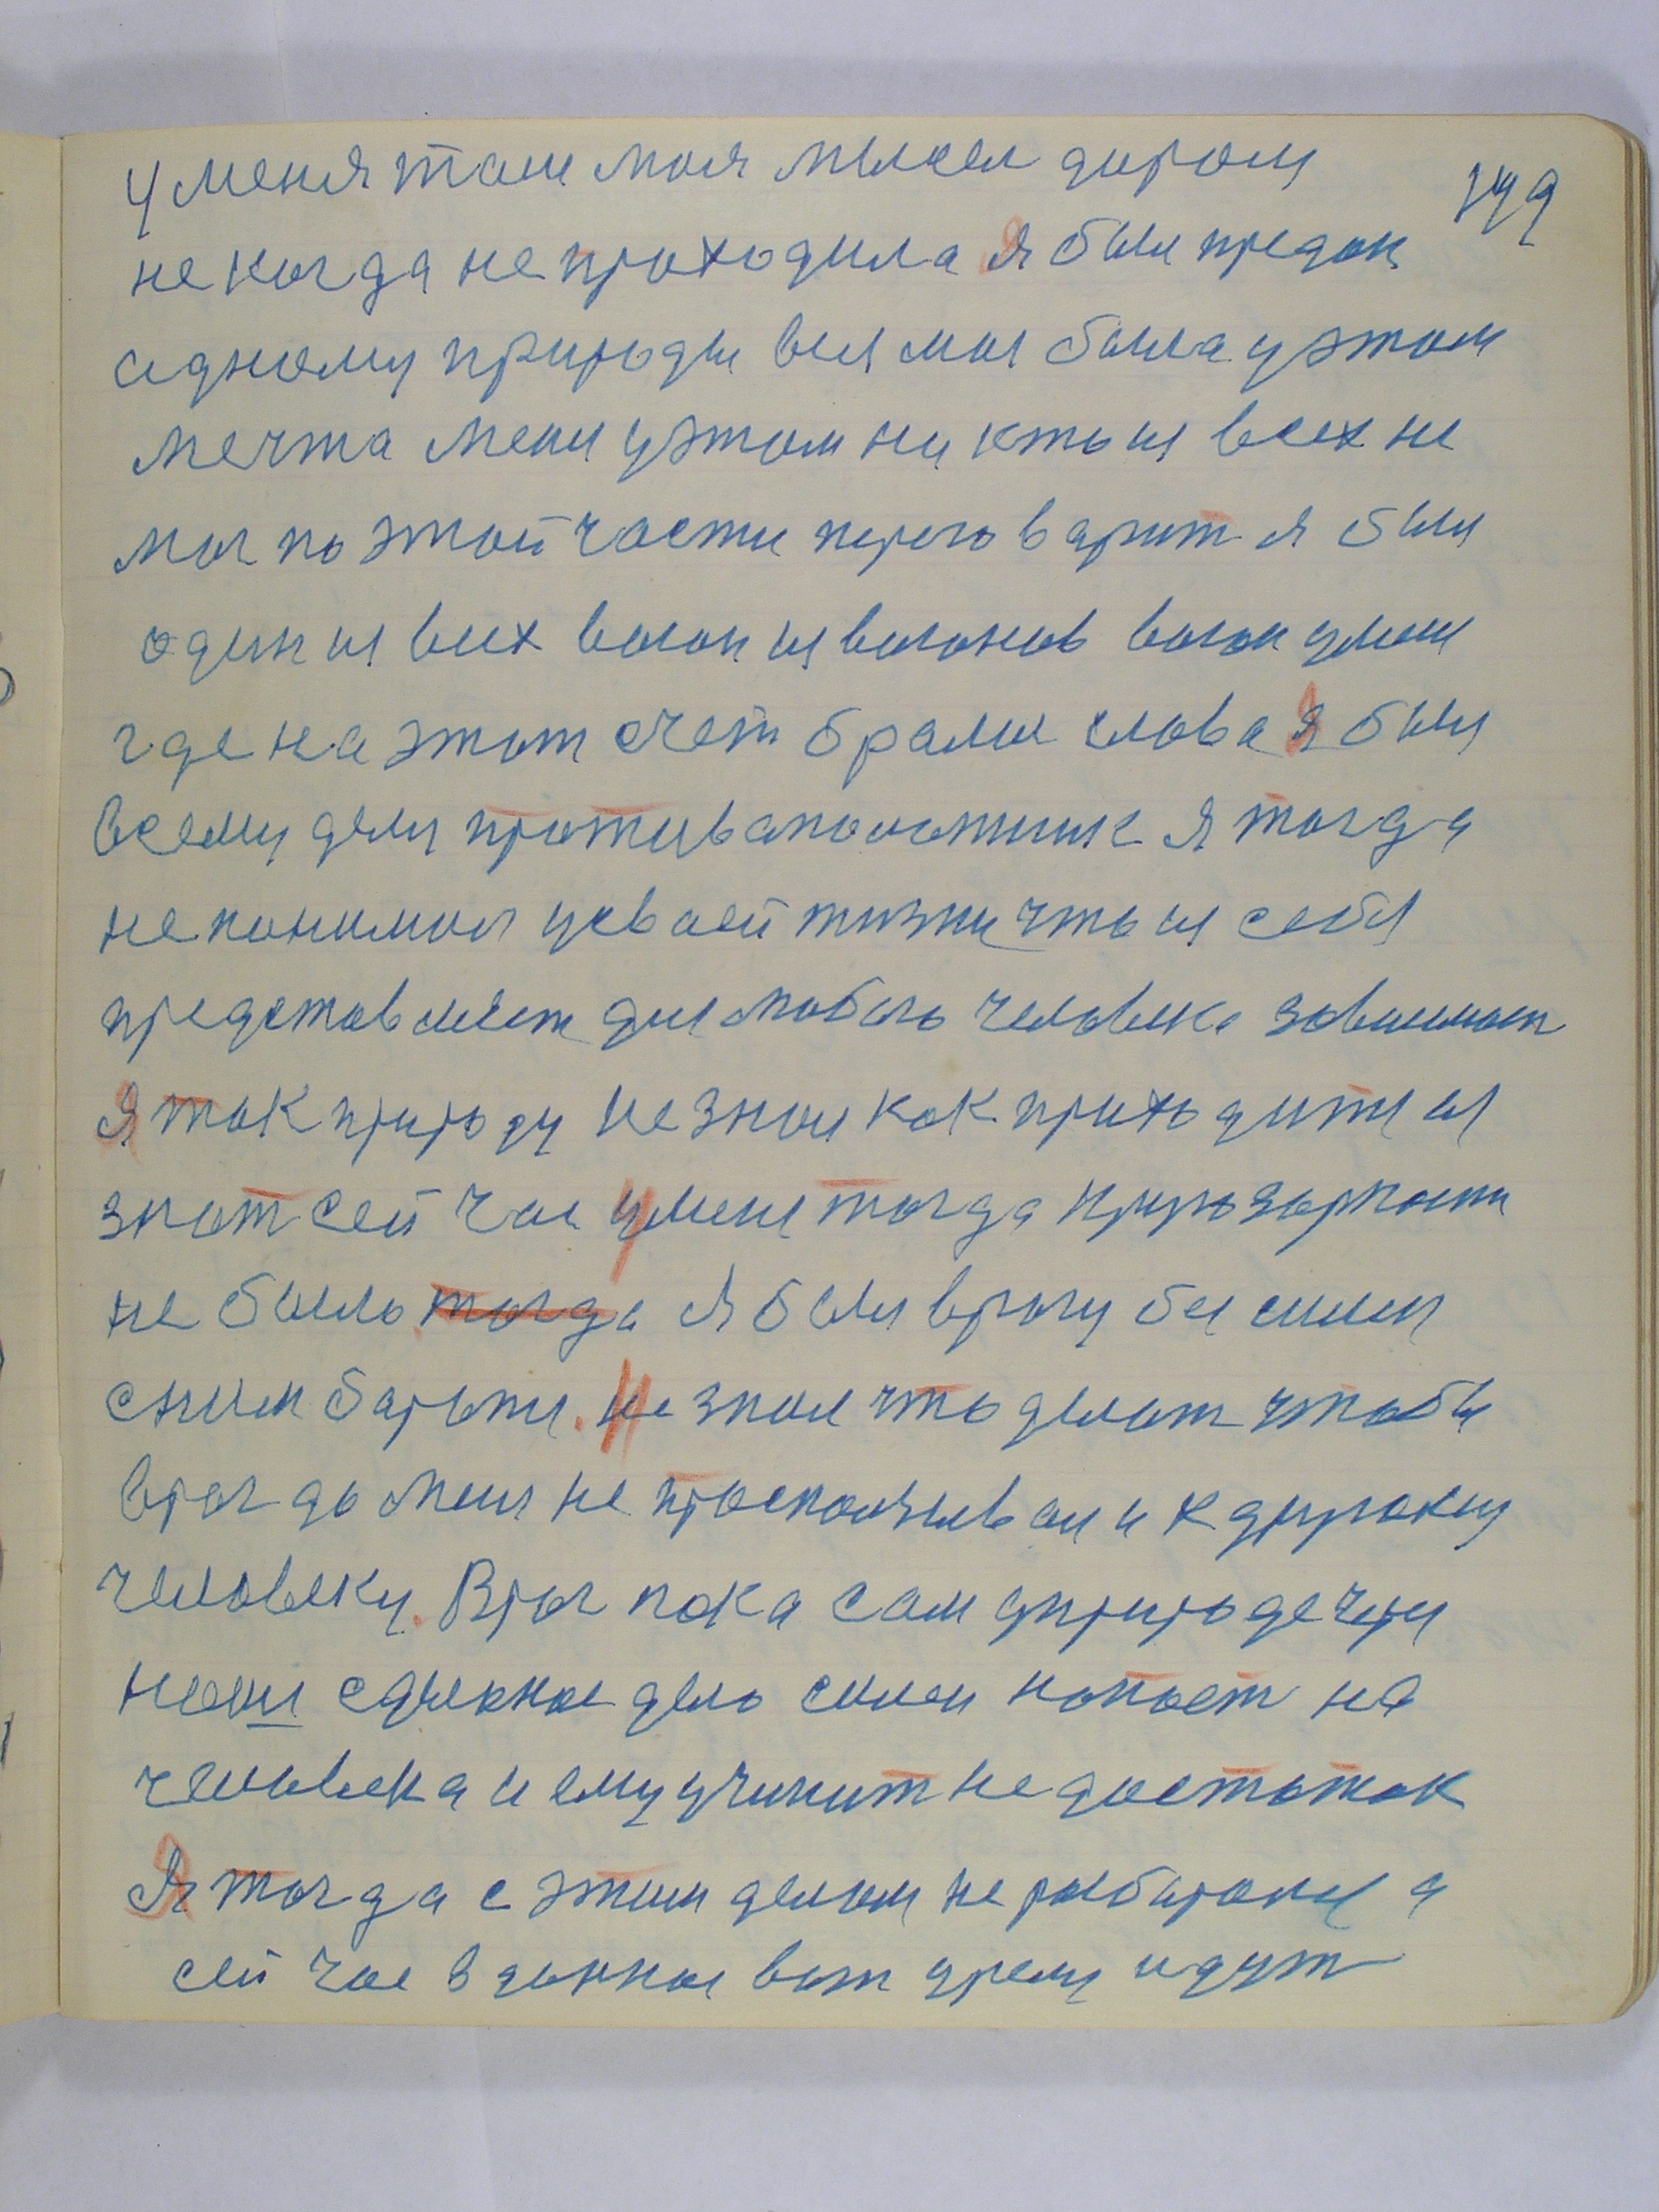 149
у меня там моя мысел даром
не когда не проходила я был предан
одному природы вся моя была у этом
мечта меня у этом ни кто из всех не
мог по этой части переговарит я был
один из всех вагон из вагонов вагон умом
где на этот счет брали слова я был
всему делу противапоставник я тогда
не понимал у своей жизни что из себя
представляет для любого человека зависимост
Я так природу не знал как приходится
знат сей час у меня тогда прозорности
не было тогда я был врагу бессилен
с ним баротся. Не знал что делат чтобы
враг до меня не проскользывал и к другому
человеку. Враг пока сам у природе через
наши сделаное дело силой напает на
человека и ему учинит недостаток
Я тогда с этим делом не разбирался а
сей час в данное вот время идут